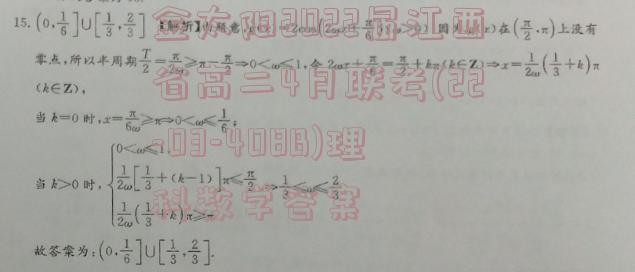 15. (0, 1/6]∪[1/3, 2/3] 【解析】 2cos(2ωx+π/6) 因为 在(π/2, π)上没有
零点,所以半周期 T/2=π/2ω≥π-π/2⇒0<ω≤1,令 2ωx+π/6=π/2+kπ(k∈Z)⇒x=1/2ω(1/3+k)π
(k∈Z),
当 k=0 时,x=π/6ω≥π⇒0<ω≤1/6;
当 k>0 时, { 0<ω≤1,
1/2ω[1/3+(k-1)]π≤π/2 ⇒1/3≤ω≤2/3
1/2ω(1/3+k)π≥π
故答案为:(0, 1/6]∪[1/3, 2/3].
金太阳2022届江西
省高二4月联考(22
-03-408B)理
科数学答案